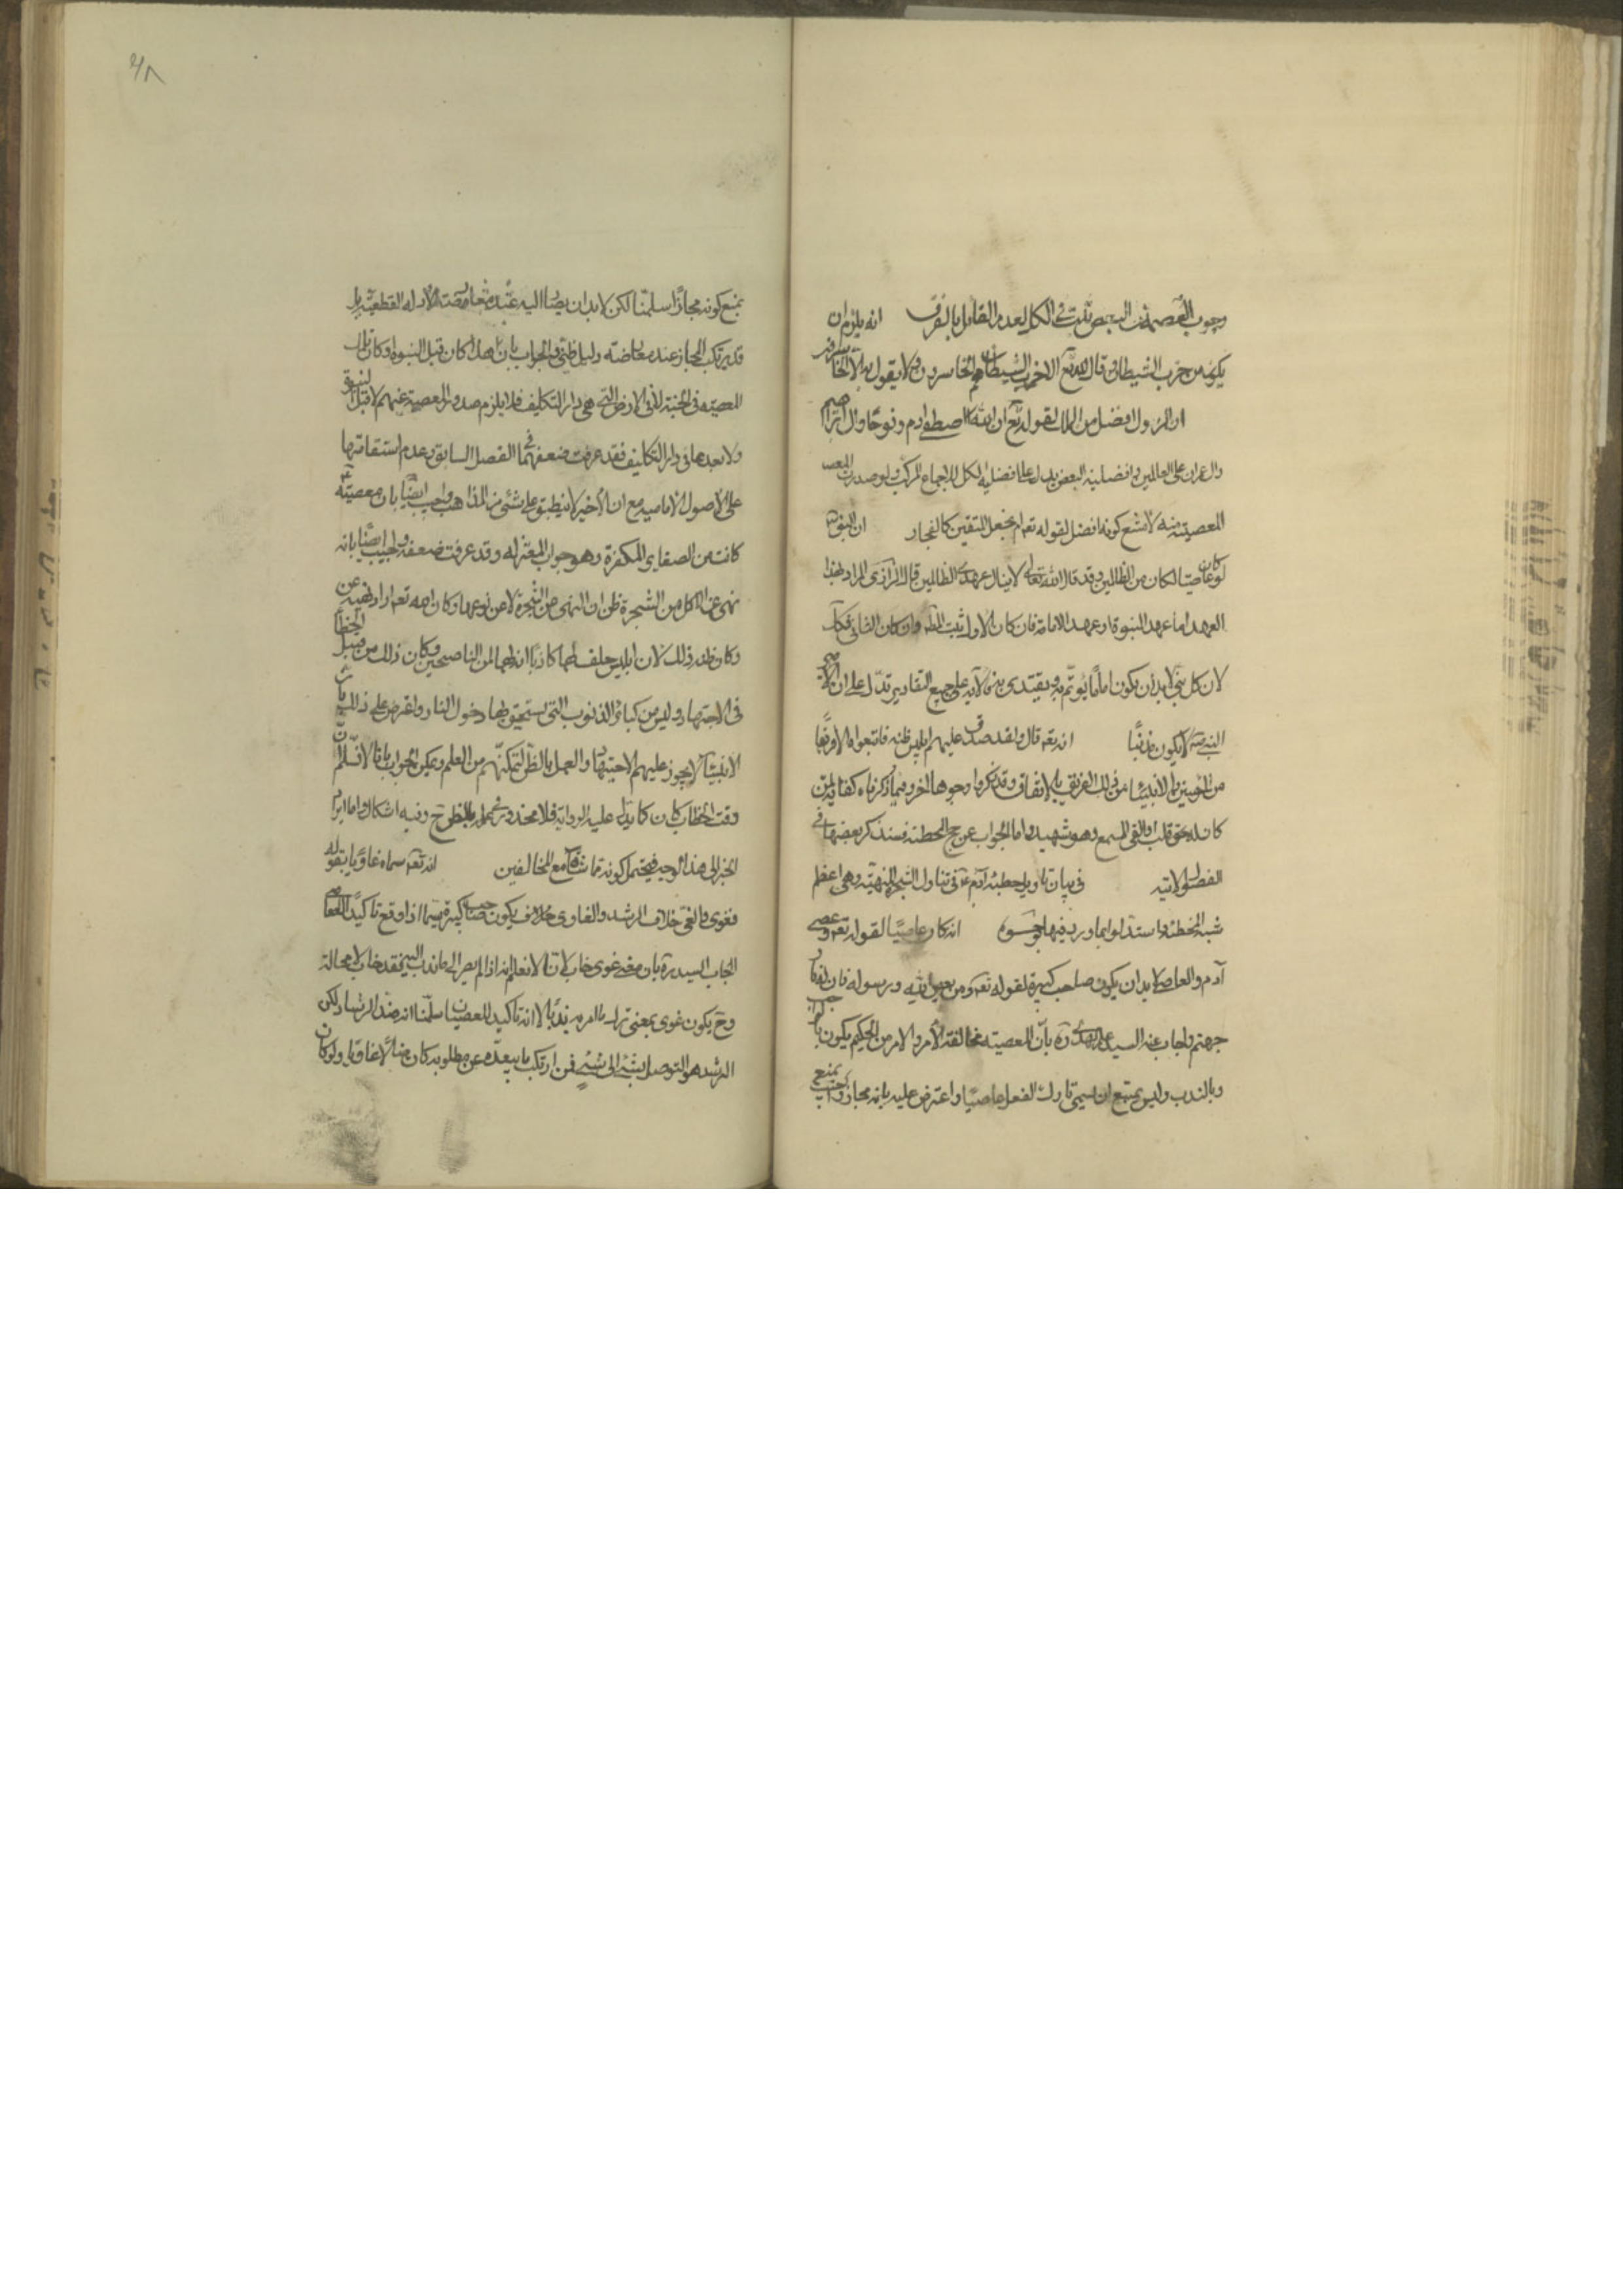 وجوب العصمة في البعض ثبت في الكل لعدم القائل بالفرق انه يلزم ان
يكون من حزب الشيطان قال الله تع الا ان حزب الشيطان هم الخاسرون ولا يقول به الا الخاسر
ان الرسول افضل من الملك لقوله تع ان الله اصطفى ادم ونوحا وال ابراهيم
وال عمران على العالمين وافضلية البعض يدل على افضلية الكل للاجماع المركب ولو صدرت
المعصية منه لامتنع كونه افضل لقوله تعم ام نجعل المتقين كالفجار ان النبي
لو كان عاصيا لكان من الظالمين وقد قال الله تعالى لا ينال عهدي الظالمين قال الرازي المراد بهذا
العهد اما عهد النبوة او عهد الامامة فان كان الاول ثبت المط وان كان الثاني فكذلك
لان كل نبي لا بد ان يكون اماما يؤتم به ويقتدى به والآية على جميع التقادير تدل على ان
النبي لا يكون مذنبا انه تعم قال ولقد صدق عليهم ابليس ظنه فاتبعوه الا فريقا
من المؤمنين والانبياء من ذلك الفريق بالاتفاق وقد ذكروا وجوها اخر وفيما ذكرناه كفاية لمن
كان له قلب او القى السمع وهو شهيد واما الجواب عن حجج المخطئة فسنذكر بعضها في
الفصول الاتية في بيان تاويل خطيئة آدم ع في تناول الشجرة المنهية وهي اعظم
شبه المخطئة واستدلوا بما ورد فيها بوجوه انه كان عاصيا لقوله تعم وعصى
آدم والعاصي لا بد ان يكون صاحب كبيرة لقوله تعم ومن يعص الله ورسوله فان له نار
جهنم واجاب عنه السيد علم الهدى ره بان المعصية مخالفة الامر والامر من الحكيم يكون بالواجب
وبالندب وليس يمتنع ان يسمى تارك الفعل عاصيا واعترض عليه بانه مجاز واجيب بمنع
بمنع كونه مجازا سلمنا لكن لا بد ان يصار اليه عند معارضة الادلة القطعية بل
قد يرتكب المجاز عند معارضة دليل ظني والجواب بان هذا كان قبل النبوة او كان تلك
المعصية في الجنة لا في الارض التي هي دار التكليف فلا يلزم صدور المعصية عنهم لا قبل النبوة
ولا بعدها في دار التكليف فقد عرفت ضعفهما في الفصل السابق وعدم استقامتها
على الاصول الامامية مع ان الاخير لا ينطبق على شيء من المذاهب واجيب ايضا بان معصيته ع
كانت من الصغاير المكفرة وهو جواب المعتزلة وقد عرفت ضعفه واجيب ايضا بانه
نهى عن الاكل من الشجرة فظن ان النهي عن الشجرة لا عن نوعها وكان الله تعم اراد نهيه عن
وكان ظنه ذلك لان ابليس حلف لهما كاذبا انه لهما لمن الناصحين وكان ذلك من قبيل الخطأ
في الاجتهاد وليس من كبائر الذنوب التي يستحق بها دخول النار واعترض على ذلك بان
الانبياء لا يجوز عليهم الاجتهاد والعمل بالظن لتمكنهم من العلم ويمكن الجواب بانا لا نسلم
وقت الخطاب كان كما يدل عليه الرواية فلا محذور في عمله بالظن ح وفيه اشكال واما ايراد
الخبر الى هذا الوجه فيحتمل كونه تماشاة مع المخالفين انه تعم سماه غاويا بقوله
فغوى والغي خلاف الرشد والغاوي يكون صاحب كبيرة سيما اذا وقع تاكيدا للعصيان
اجاب السيد ره بان معنى غوى خاب لانا نعلم انه اذا لم يصر الى ما ندب اليه فقد خاب لا محالة
وح يكون غوى بمعنى ترك ما امر به ندبا لا انه تاكيد للعصيان سلمنا انه ضد الرشاد لكن
الرشد هو التوصل بشيء الى شيء فمن ارتكب ما يبعده عن مطلوبه كان ضالا غاويا ولو كان